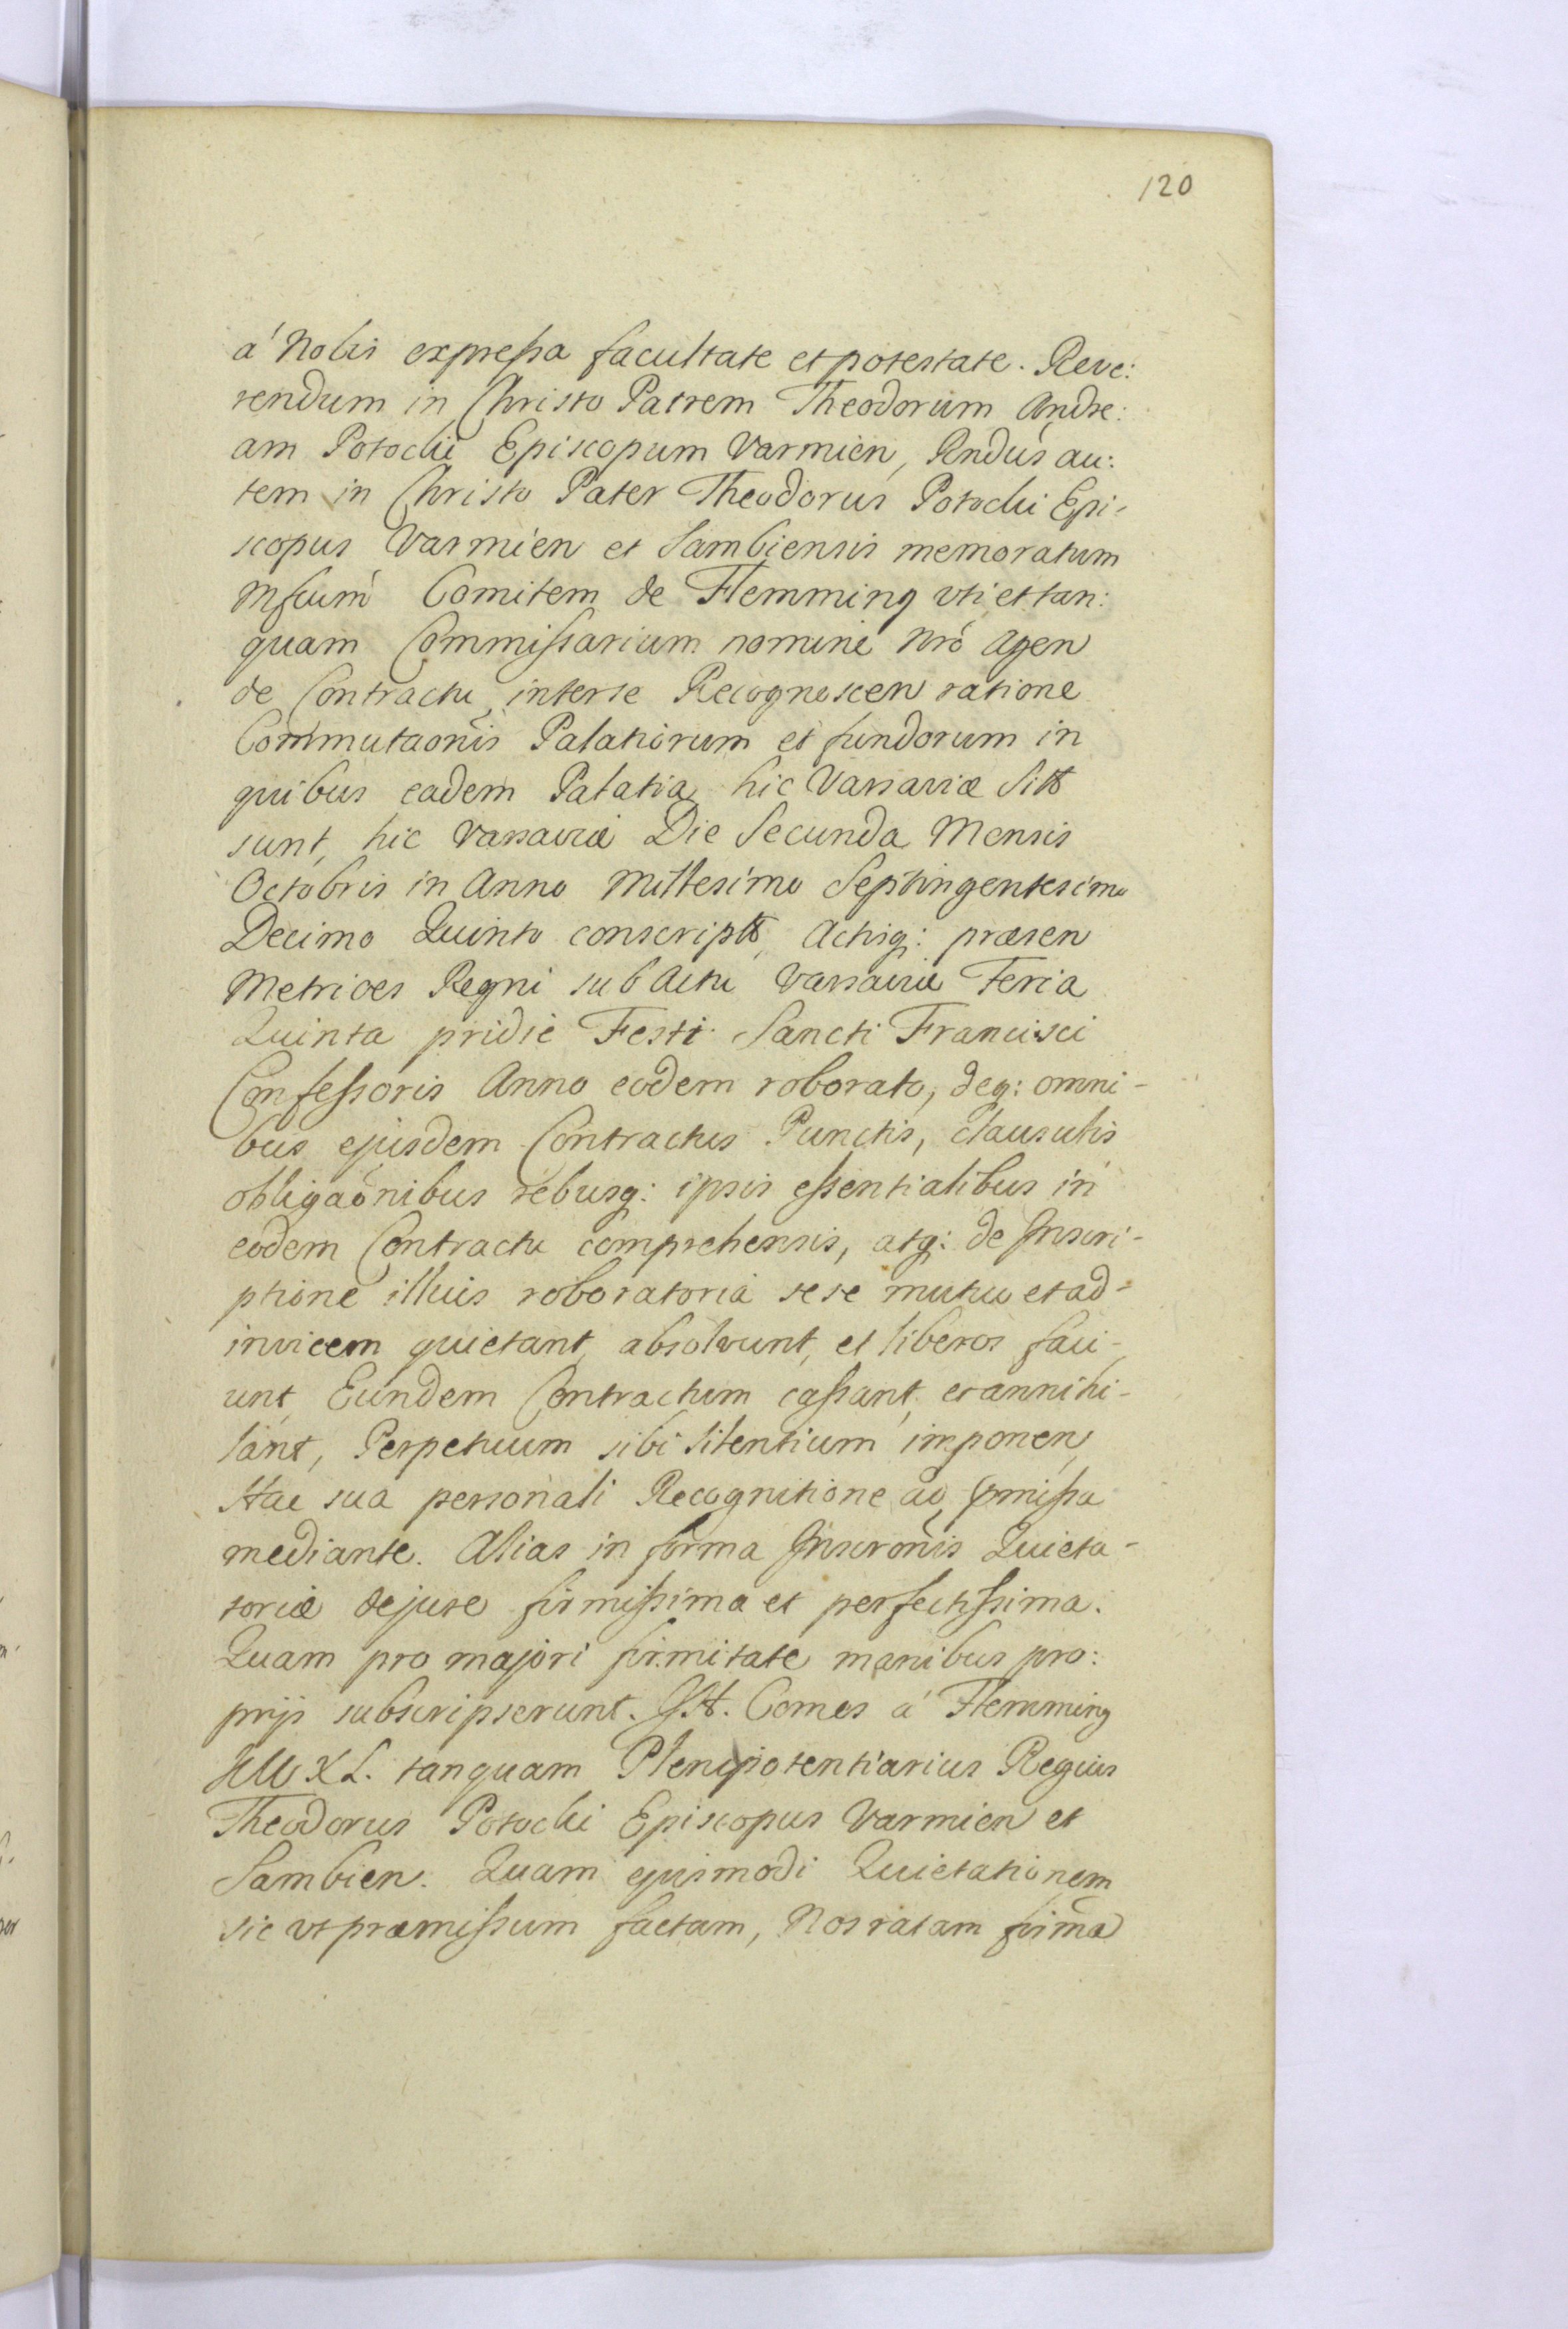 120
a' Nobis expressa facultate et potestate. Reve:
rendum in Christo Patrem Theodorum Andre:
am Potocki Episcopum Varmien, Rndus au:
tem in Christo Pater Theodorus Potocki Epi-
scopus Varmien et Sambiensis memoratum
Mfcum Comitem de Flemming uti et tan:
quam Commissarium nomine Nrõ Agen
de Contractu, inter se Recognoscen ratione
Commutaonis Palatiorum et fundorum in
quibus eadem Palatia, hic Varsaviæ Sitt
sunt, hic Varsaviæ Die Secunda Mensis
Octobris in Anno Millesimo Septingentesimo
Decimo Quinto conscripto, Actisq: præsen
Metrices Regni sub Actu Varsaviæ Feria
Quinta pridie Festi Sancti Francisci
Confessoris Anno eodem roborato, deq: omni-
bus ejusdem Contractus Punctis, clausulis
obligaõnibus rebusq: ipsis essentialibus in
eodem Contractu comprehensis, atq: de Inscri-
ptione illius roboratoria sese mutuo et ad-
invicem quietant, absolvunt, et liberos faci-
unt, Eundem Contractum cassant, et annihi-
lant, Perpetuum sibi silentium imponen,
Hac sua personali Recognitione ad pmissa
mediante. Alias in forma Inscronis Quieta-
toriæ de jure firmissima et perfectissima.
Quam pro majori firmitate manibus pro:
prijs subscripserunt. J.H. Comes a' Flemming
X L. tanquam Plenipotentiarius Regius
Theodorus Potocki Episcopus Varmien et
Sambien. Quam ejusmodi Quietationem
sic ut præmissum factam, Nos ratam firma